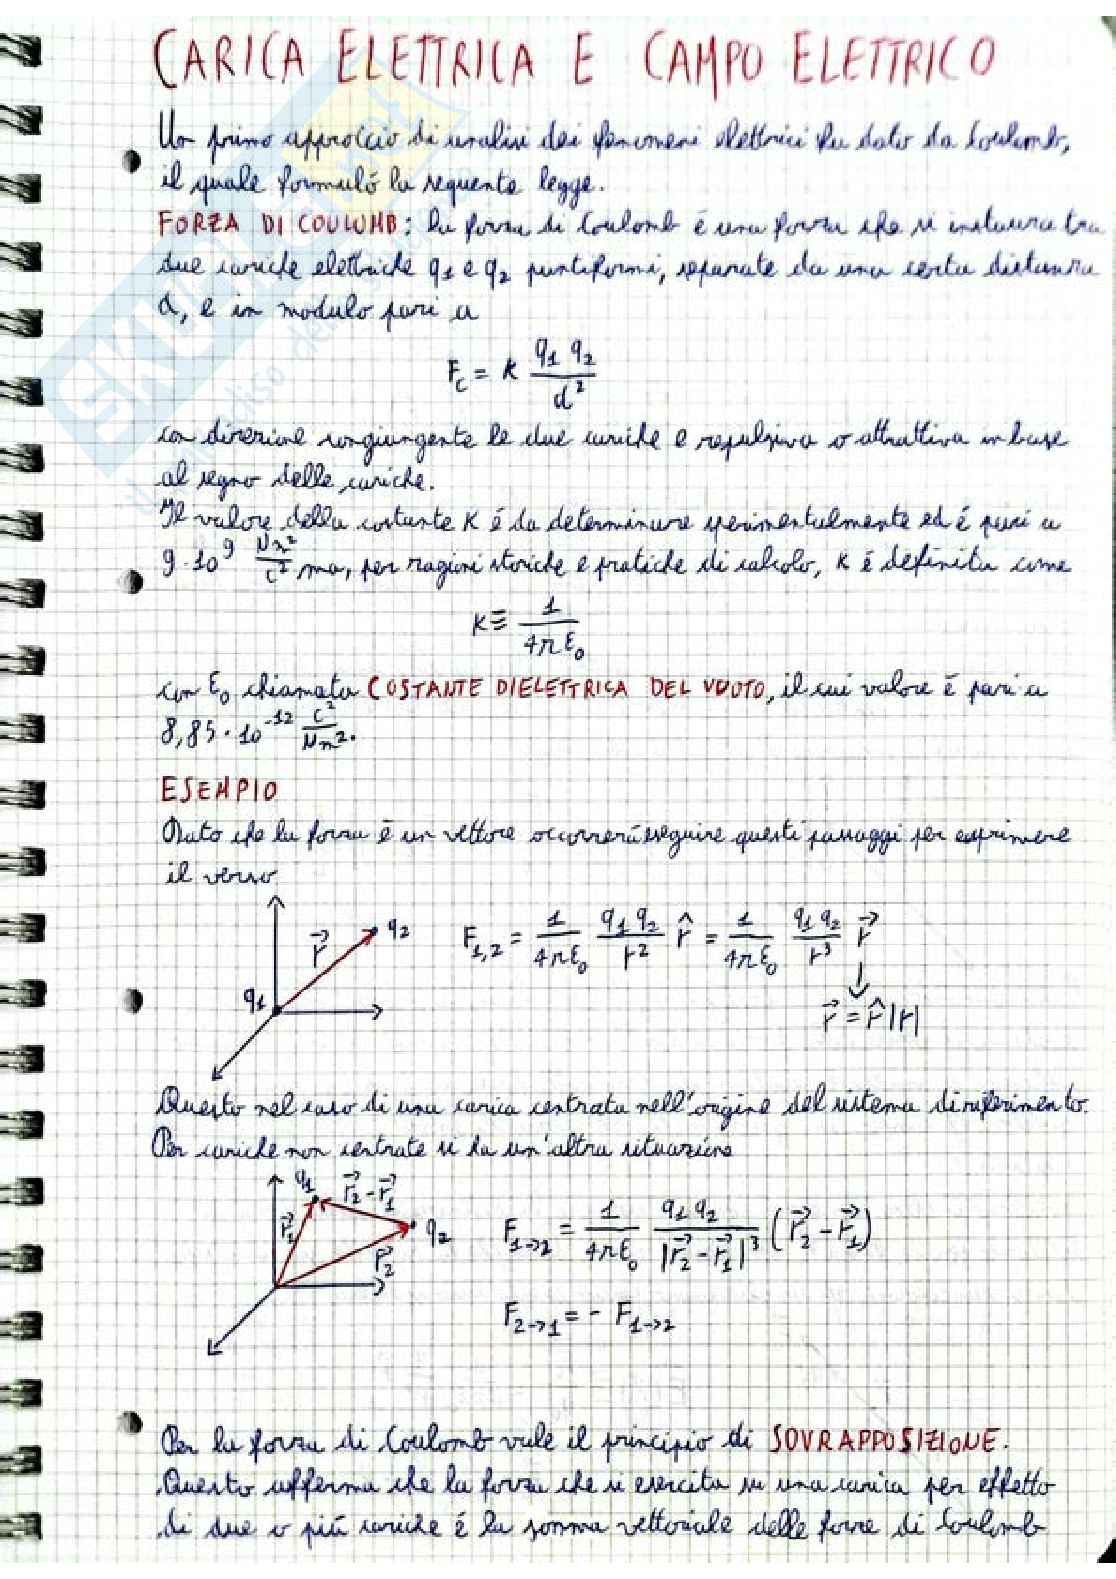 CARICA ELETTRICA E CAMPO ELETTRICO
Un primo approccio di analisi dei fenomeni elettrici fu dato da Coulomb,
il quale formuló la seguente legge.
FORZA DI COULOMB: la forza di Coulomb é una forza che si instaura tra
due cariche elettriche q₁ e q₂ puntiformi, separate da una certa distanza
d, e in modulo pari a
F_c = K q₁ q₂ / d²
con direzione congiungente le due cariche e repulsiva o attrattiva in base
al segno delle cariche.
Il valore della costante K é da determinare sperimentalmente ed é pari a
9·10⁹ Nm²/C² ma, per ragioni storiche e pratiche di calcolo, K é definita come
K ≡ 1 / 4πε₀
con ε₀ chiamata COSTANTE DIELETTRICA DEL VUOTO, il cui valore é pari a
8,85·10⁻¹² C²/Nm².
ESEMPIO
Dato che la forza é un vettore occorrerá eseguire questi passaggi per esprimere
il verso
r⃗ q₂ q₁
F₁,₂ = 1/4πε₀ q₁ q₂/r² r̂ = 1/4πε₀ q₁ q₂/r³ r⃗
r⃗ = r̂ |r|
Questo nel caso di una carica centrata nell'origine del sistema di riferimento.
Per cariche non centrate si ha un'altra situazione
q₁ r⃗₂ - r⃗₁ r⃗₁ q₂ r⃗₂
F₁→₂ = 1/4πε₀ q₁ q₂/|r⃗₂ - r⃗₁|³ (r⃗₂ - r⃗₁)
F₂→₁ = - F₁→₂
Per la forza di Coulomb vale il principio di SOVRAPPOSIZIONE.
Questo afferma che la forza che si esercita su una carica per effetto
di due o piú cariche é la somma vettoriale delle forze di Coulomb